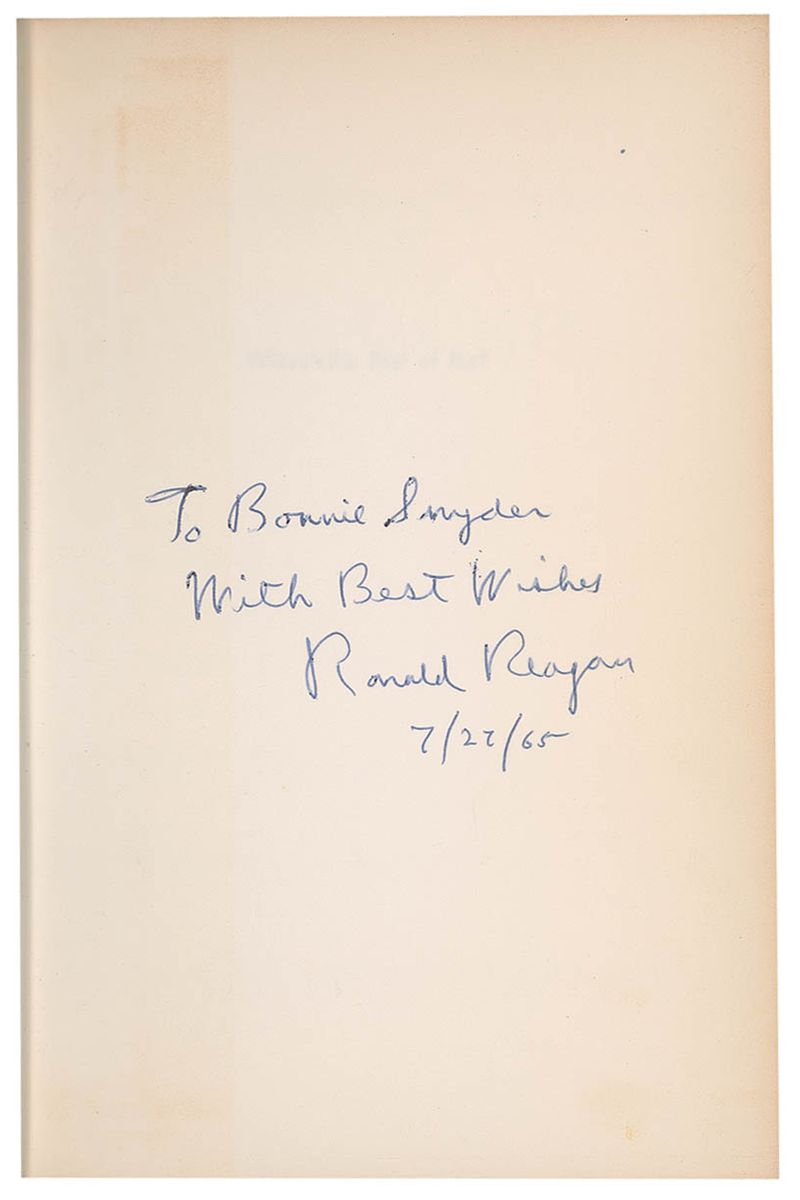 To Bonnie Snyder
With Best Wishes
Ronald Reagan
7/27/65